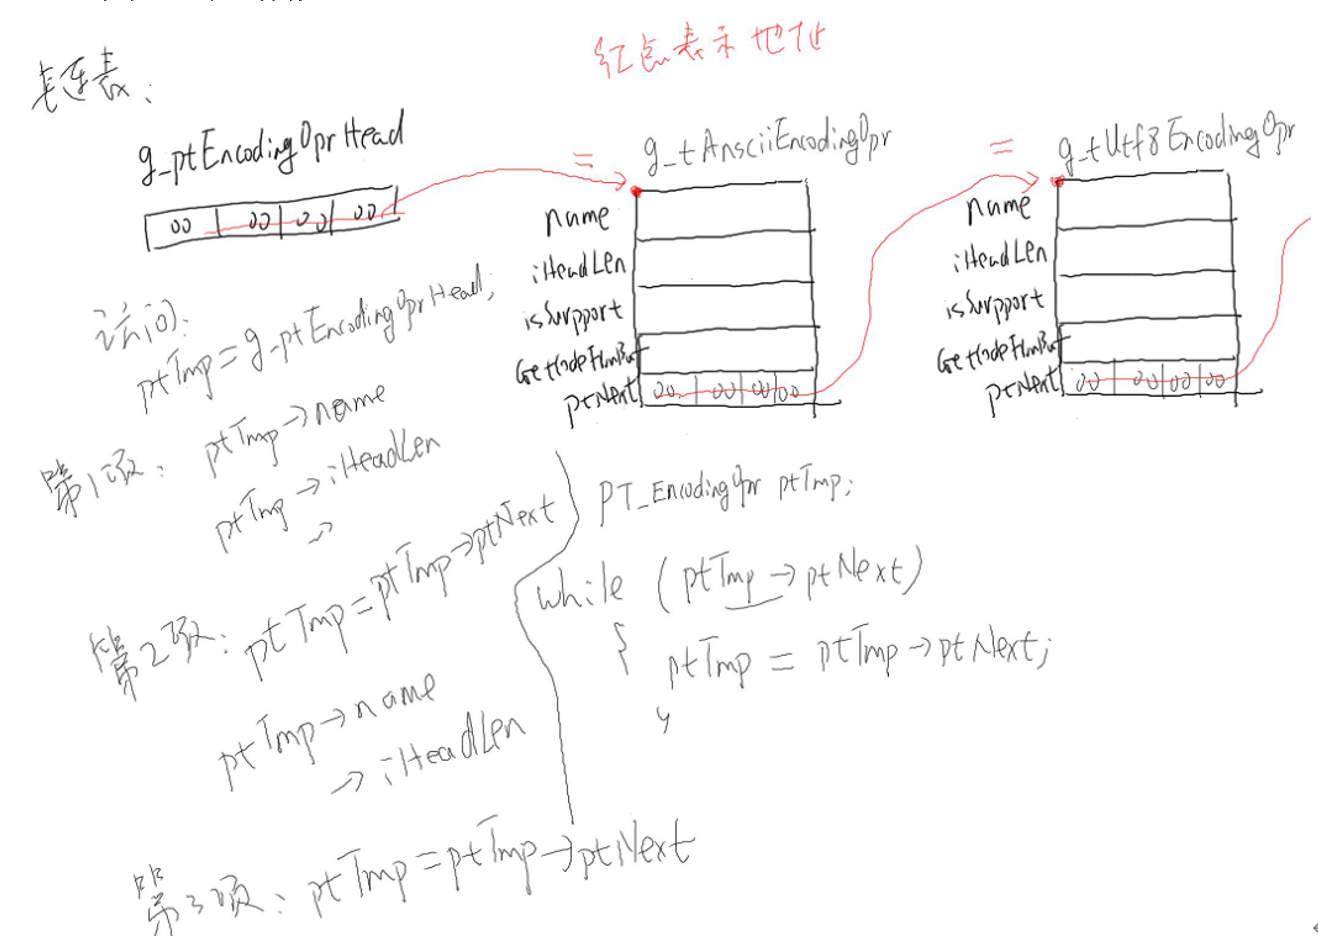 红点表示地址
链表：
g_ptEncodingOprHead
00 00 00 00
= g_tAnsciiEncodingOpr
name
iHeadLen
isSurpport
GetCodeFrmBuf
ptNext 00 00 00 00
= g_tUtf8EncodingOpr
name
iHeadLen
isSurpport
GetCodeFrmBuf
ptNext 00 00 00 00
访问:
ptTmp = g_ptEncodingOprHead;
第1项: ptTmp→name
ptTmp→iHeadLen
→
第2项: ptTmp=ptTmp→ptNext
ptTmp→name
→iHeadLen
第3项: ptTmp=ptTmp→ptNext
PT_EncodingOpr ptTmp;
while (ptTmp→ptNext)
{
ptTmp = ptTmp→ptNext;
}